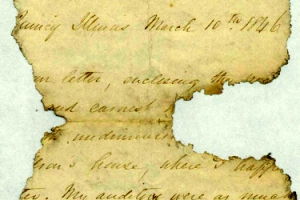 Quincy Illinois March 10th 1846
letter, enclosing the
and earnest
undiminished
house, where I happ
My auditors were as